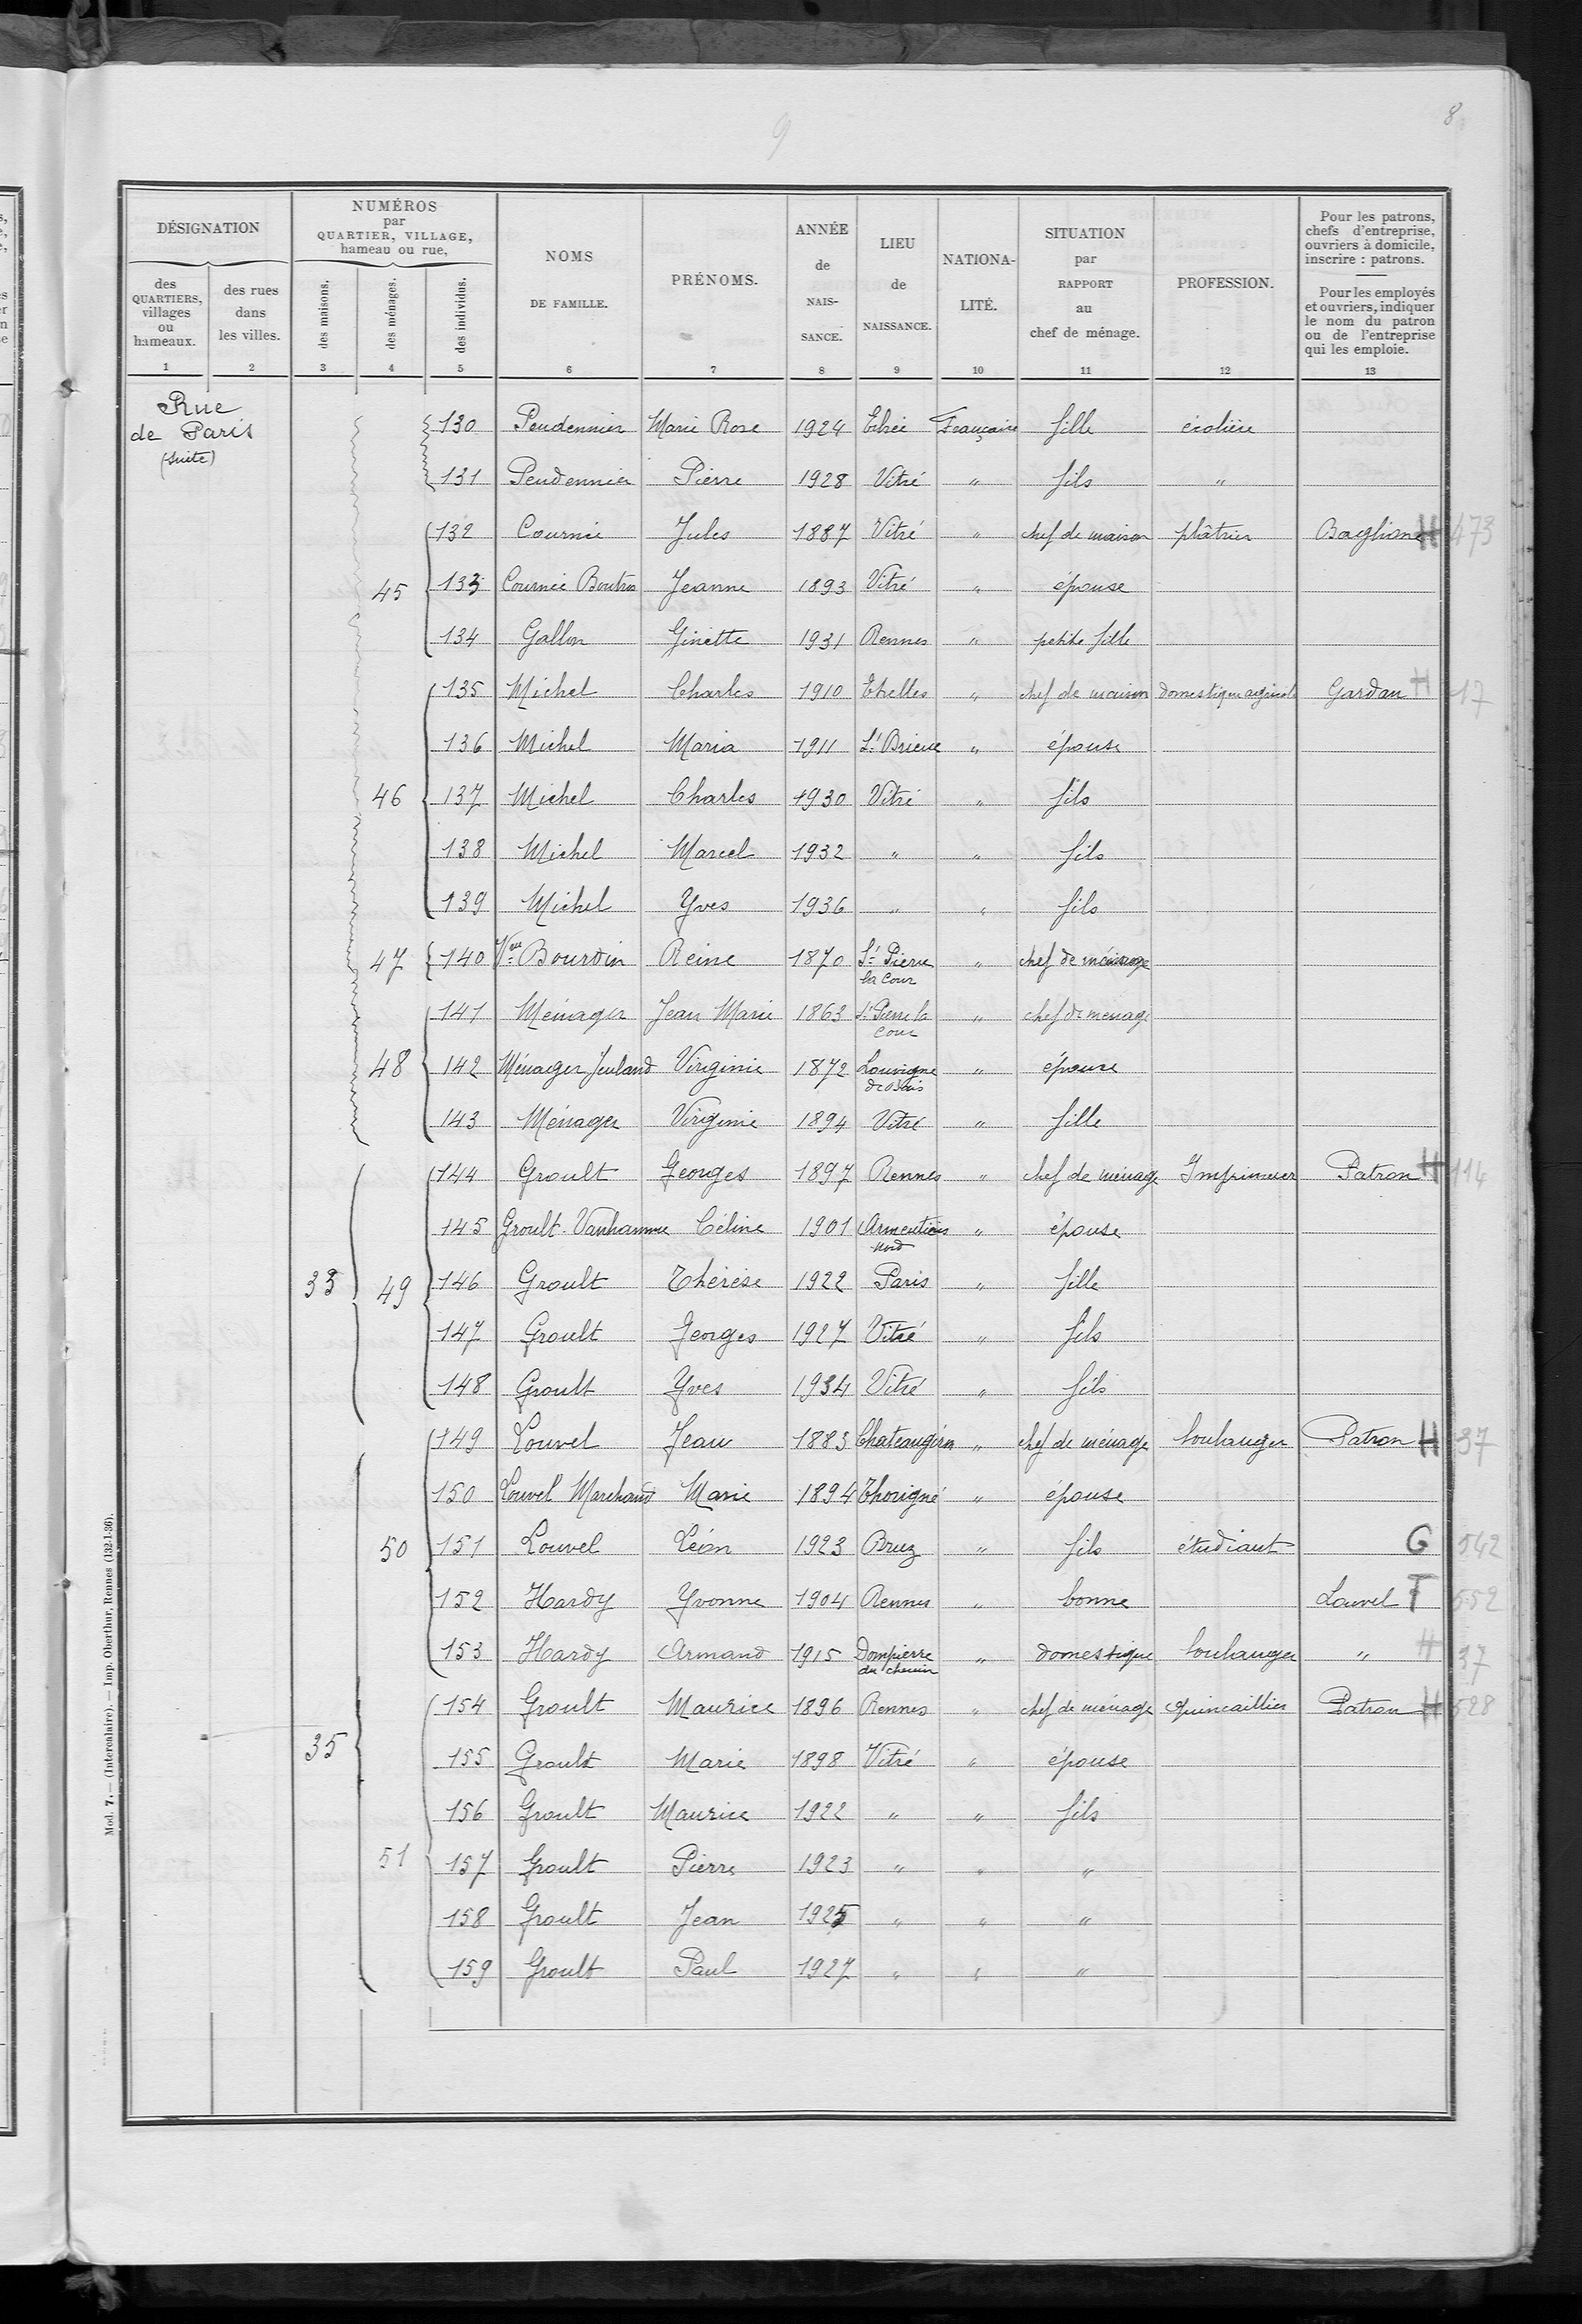 8
9
DÉSIGNATION
NUMÉROS
par
QUARTIER, VILLAGE,
hameau ou rue,
NOMS
DE FAMILLE.
PRÉNOMS.
ANNÉE
de
NAIS-
SANCE.
LIEU
de
NAISSANCE.
NATIONA-
LITÉ.
SITUATION
par
RAPPORT
au
chef de ménage.
PROFESSION.
Pour les patrons,
chefs d'entreprise,
ouvriers à domicile,
inscrire : patrons.
Pour les employés
et ouvriers, indiquer
le nom du patron
ou de l'entreprise
qui les emploie.
des
QUARTIERS,
villages
ou
hameaux.
des rues
dans
les villes.
des maisons.
des ménages.
des individus.
1 2 3 4 5 6 7 8 9 10 11 12 13
Rue
de Paris
(suite)
130 Pendennier Marie Rose 1924 Française fille écolière
131 Pendennier Pierre 1928 Vitré " fils "
132 Cournée Jules 1887 Vitré " chef de maison plâtrier Baglione H 473
45 133 Cournée Jeanne 1893 Vitré " épouse
134 Gallon Ginette 1931 Rennes " petite fille
135 Michel Charles 1910 Ethelles " chef de maison domestique agricole Gardan H 17
136 Michel Maria 1911 St Brieuc " épouse
46 137 Michel Charles 1930 Vitré " fils
138 Michel Marcel 1932 " " fils
139 Michel Yves 1936 " " fils
47 140 Vve Bourdin Reine 1870 St Pierre la Cour " chef de ménage
141 Ménager Jean Marie 1863 St Pierre la Cour " chef de ménage
48 142 Ménager Jeuland Virginie 1872 Louvigné de Bais " épouse
143 Ménager Virginie 1894 Vitré " fille
144 Groult Georges 1897 Rennes " chef de ménage Imprimeur Patron H 114
145 Groult-Vanhamme Céline 1901 Armentières Nord " épouse
33 49 146 Groult Thérèse 1922 Paris " fille
147 Groult Georges 1927 Vitré " fils
148 Groult Yves 1934 Vitré " fils
149 Louvel Jean 1883 Chateaugiron " chef de ménage boulanger Patron H 37
150 Louvel Marchand Marie 1894 Thorigné " épouse
50 151 Louvel Léon 1923 Bruz " fils étudiant G 542
152 Hardy Yvonne 1904 Rennes " bonne Louvel T 552
153 Hardy Armand 1915 Dompierre du chemin " domestique boulanger " H 37
154 Groult Maurice 1896 Rennes " chef de ménage quincaillier Patron H 528
35 155 Groult Marie 1898 Vitré " épouse
156 Groult Maurice 1922 " " fils
51 157 Groult Pierre 1923 " " "
158 Groult Jean 1925 " " "
159 Groult Paul 1927 " " "
Mod. 7. — (Intercalaire). — Imp. Oberthur, Rennes (132-1-36).